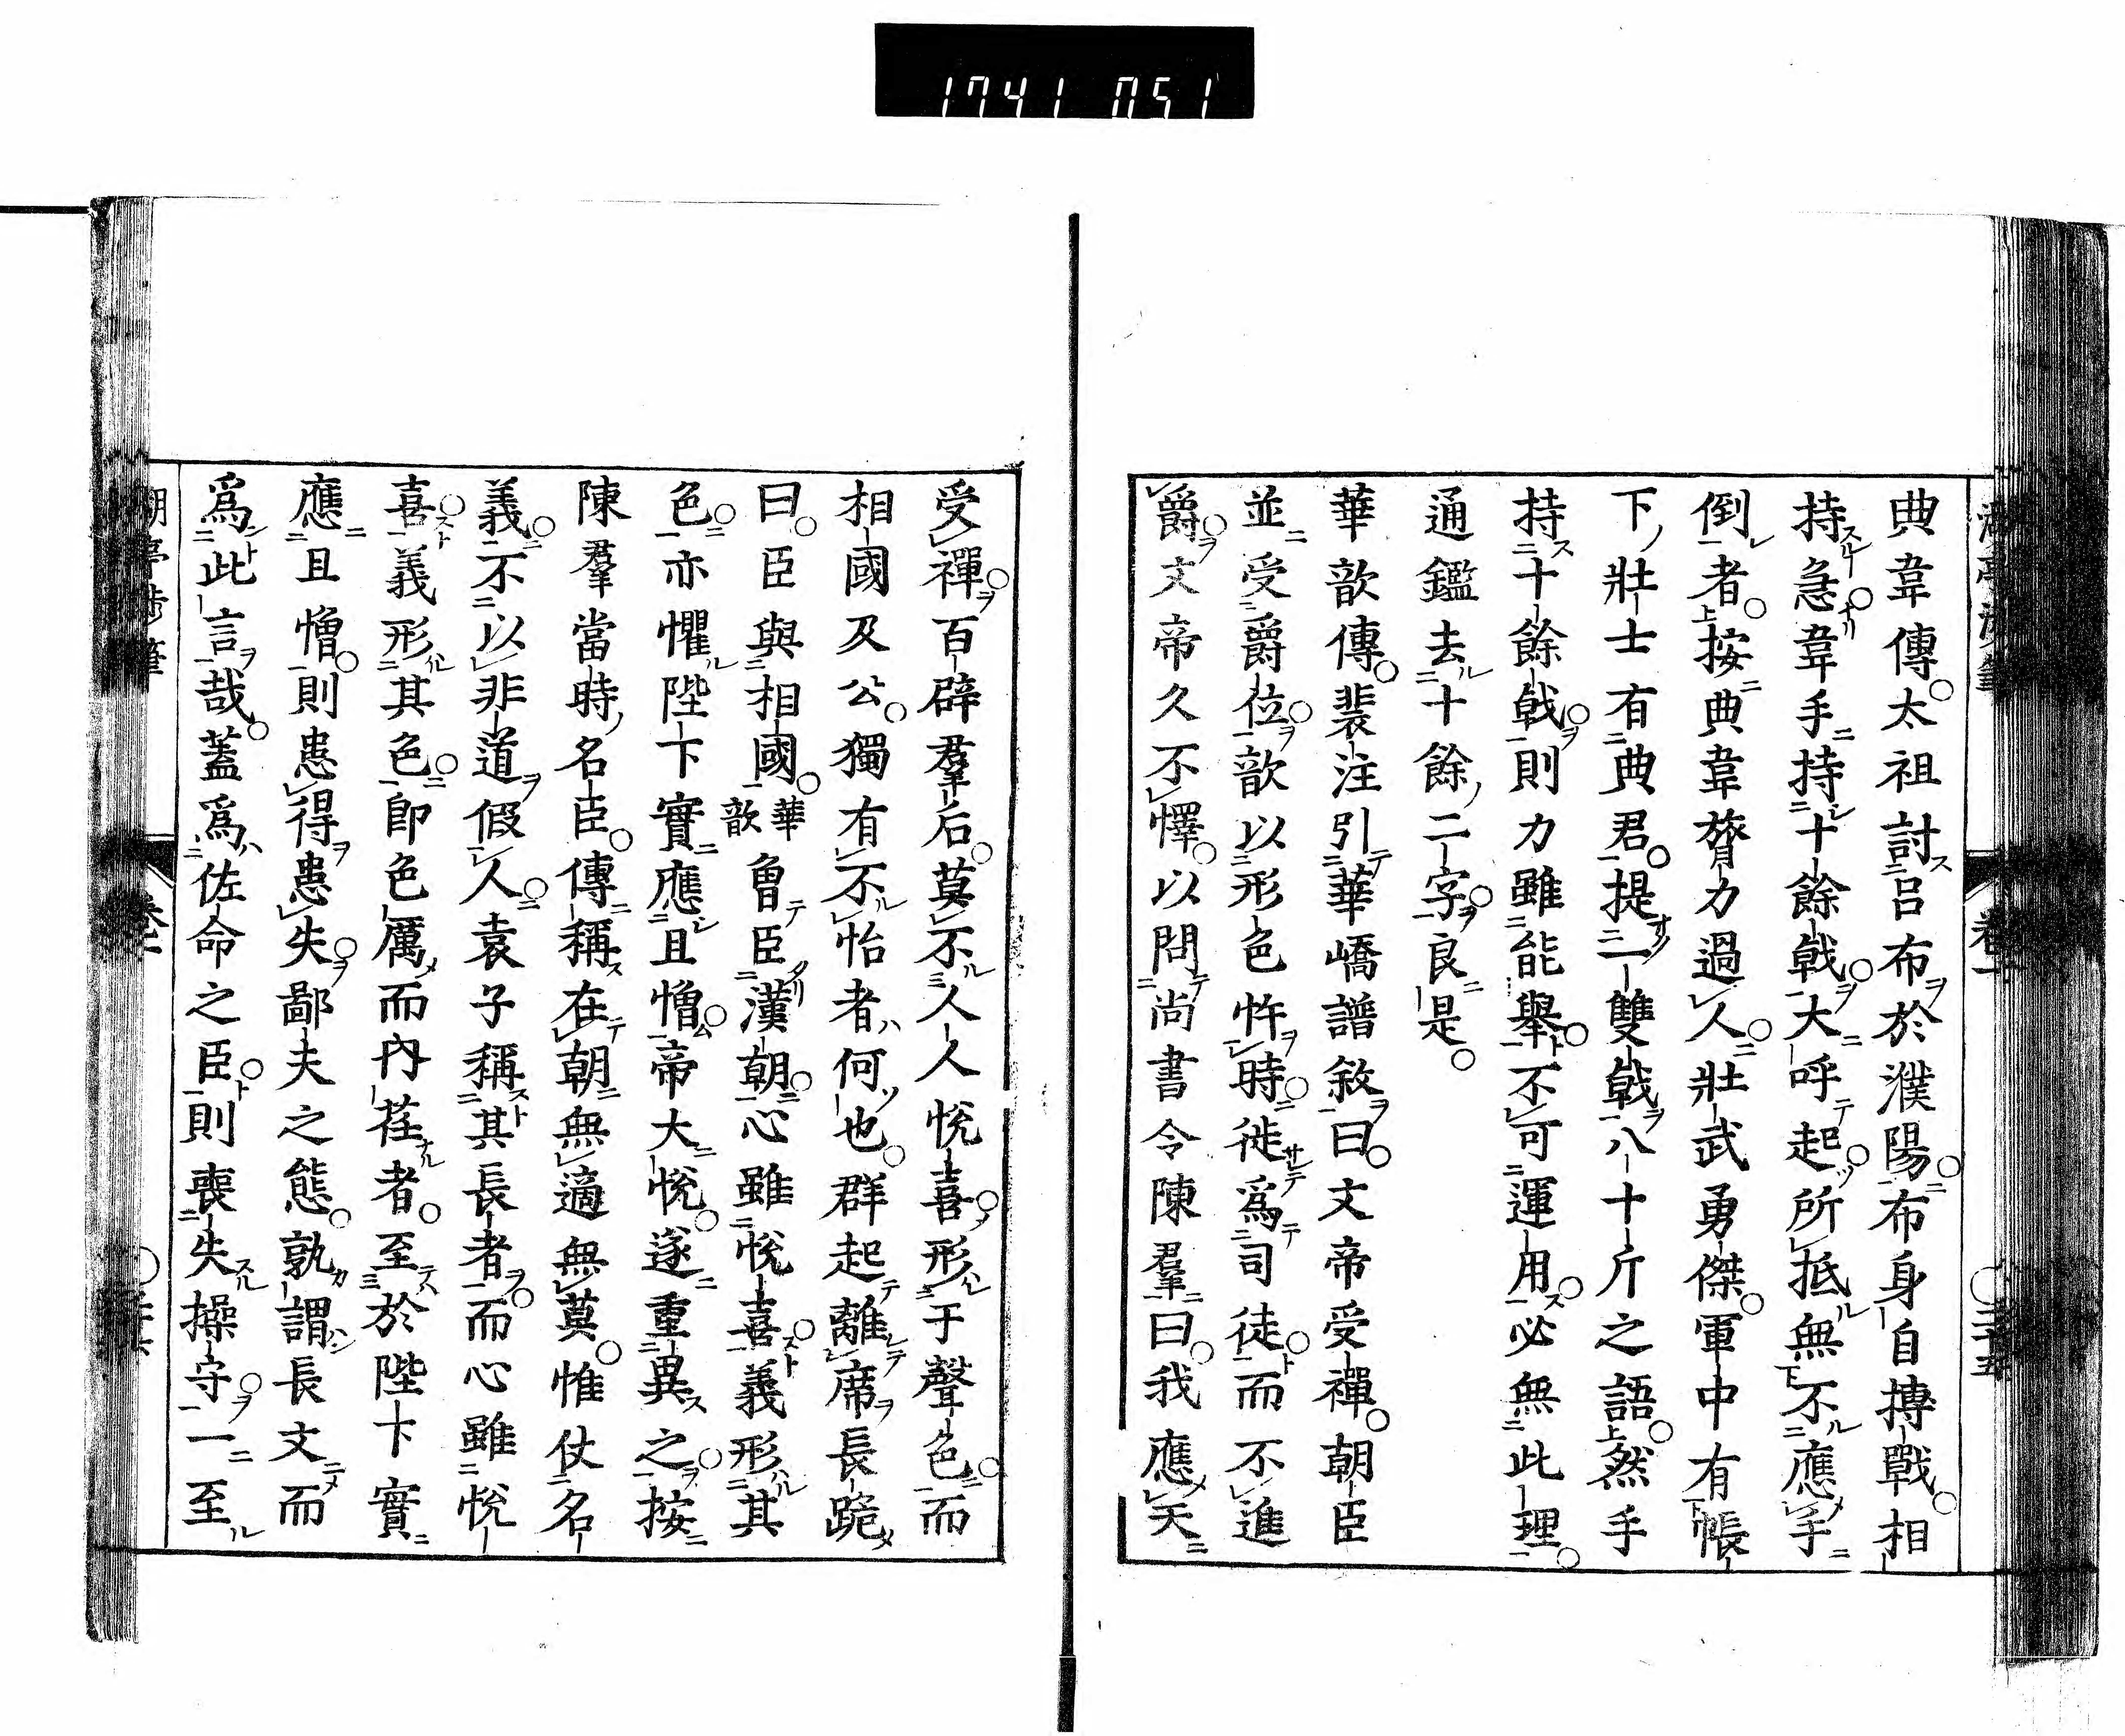 1741 051
典韋傳太祖討呂布於濮陽布身自搏戰相
持急韋手持十餘戟大呼起所抵無不應手
倒者按典韋膂力過人壯武勇傑軍中有帳
下壯士有典君提一雙戟八十斤之語然手
持十餘戟則力雖能舉不可運用必無此理
通鑑去十餘二字良是
華歆傳裴注引華嶠譜敘曰文帝受禪朝臣
並受爵位歆以形色忤時徙爲司徒而不進
爵文帝久不懌以問尚書令陳羣曰我應天
受禪百辟羣后莫不人人悅喜形于聲色而
相國及公獨有不怡者何也群起離席長跪
曰臣與相國華歆曾臣漢朝心雖悅喜義形其
色亦懼陛下實應且憎帝大悅遂重異之按
陳羣當時名臣傳稱在朝無適無莫惟仗名
義不以非道假人袁子稱其長者而心雖悅
喜義形其色卽色厲而內荏者至於陛下實
應且憎則患得患失鄙夫之態孰謂長文而
爲此言哉蓋爲佐命之臣則喪失操守一至